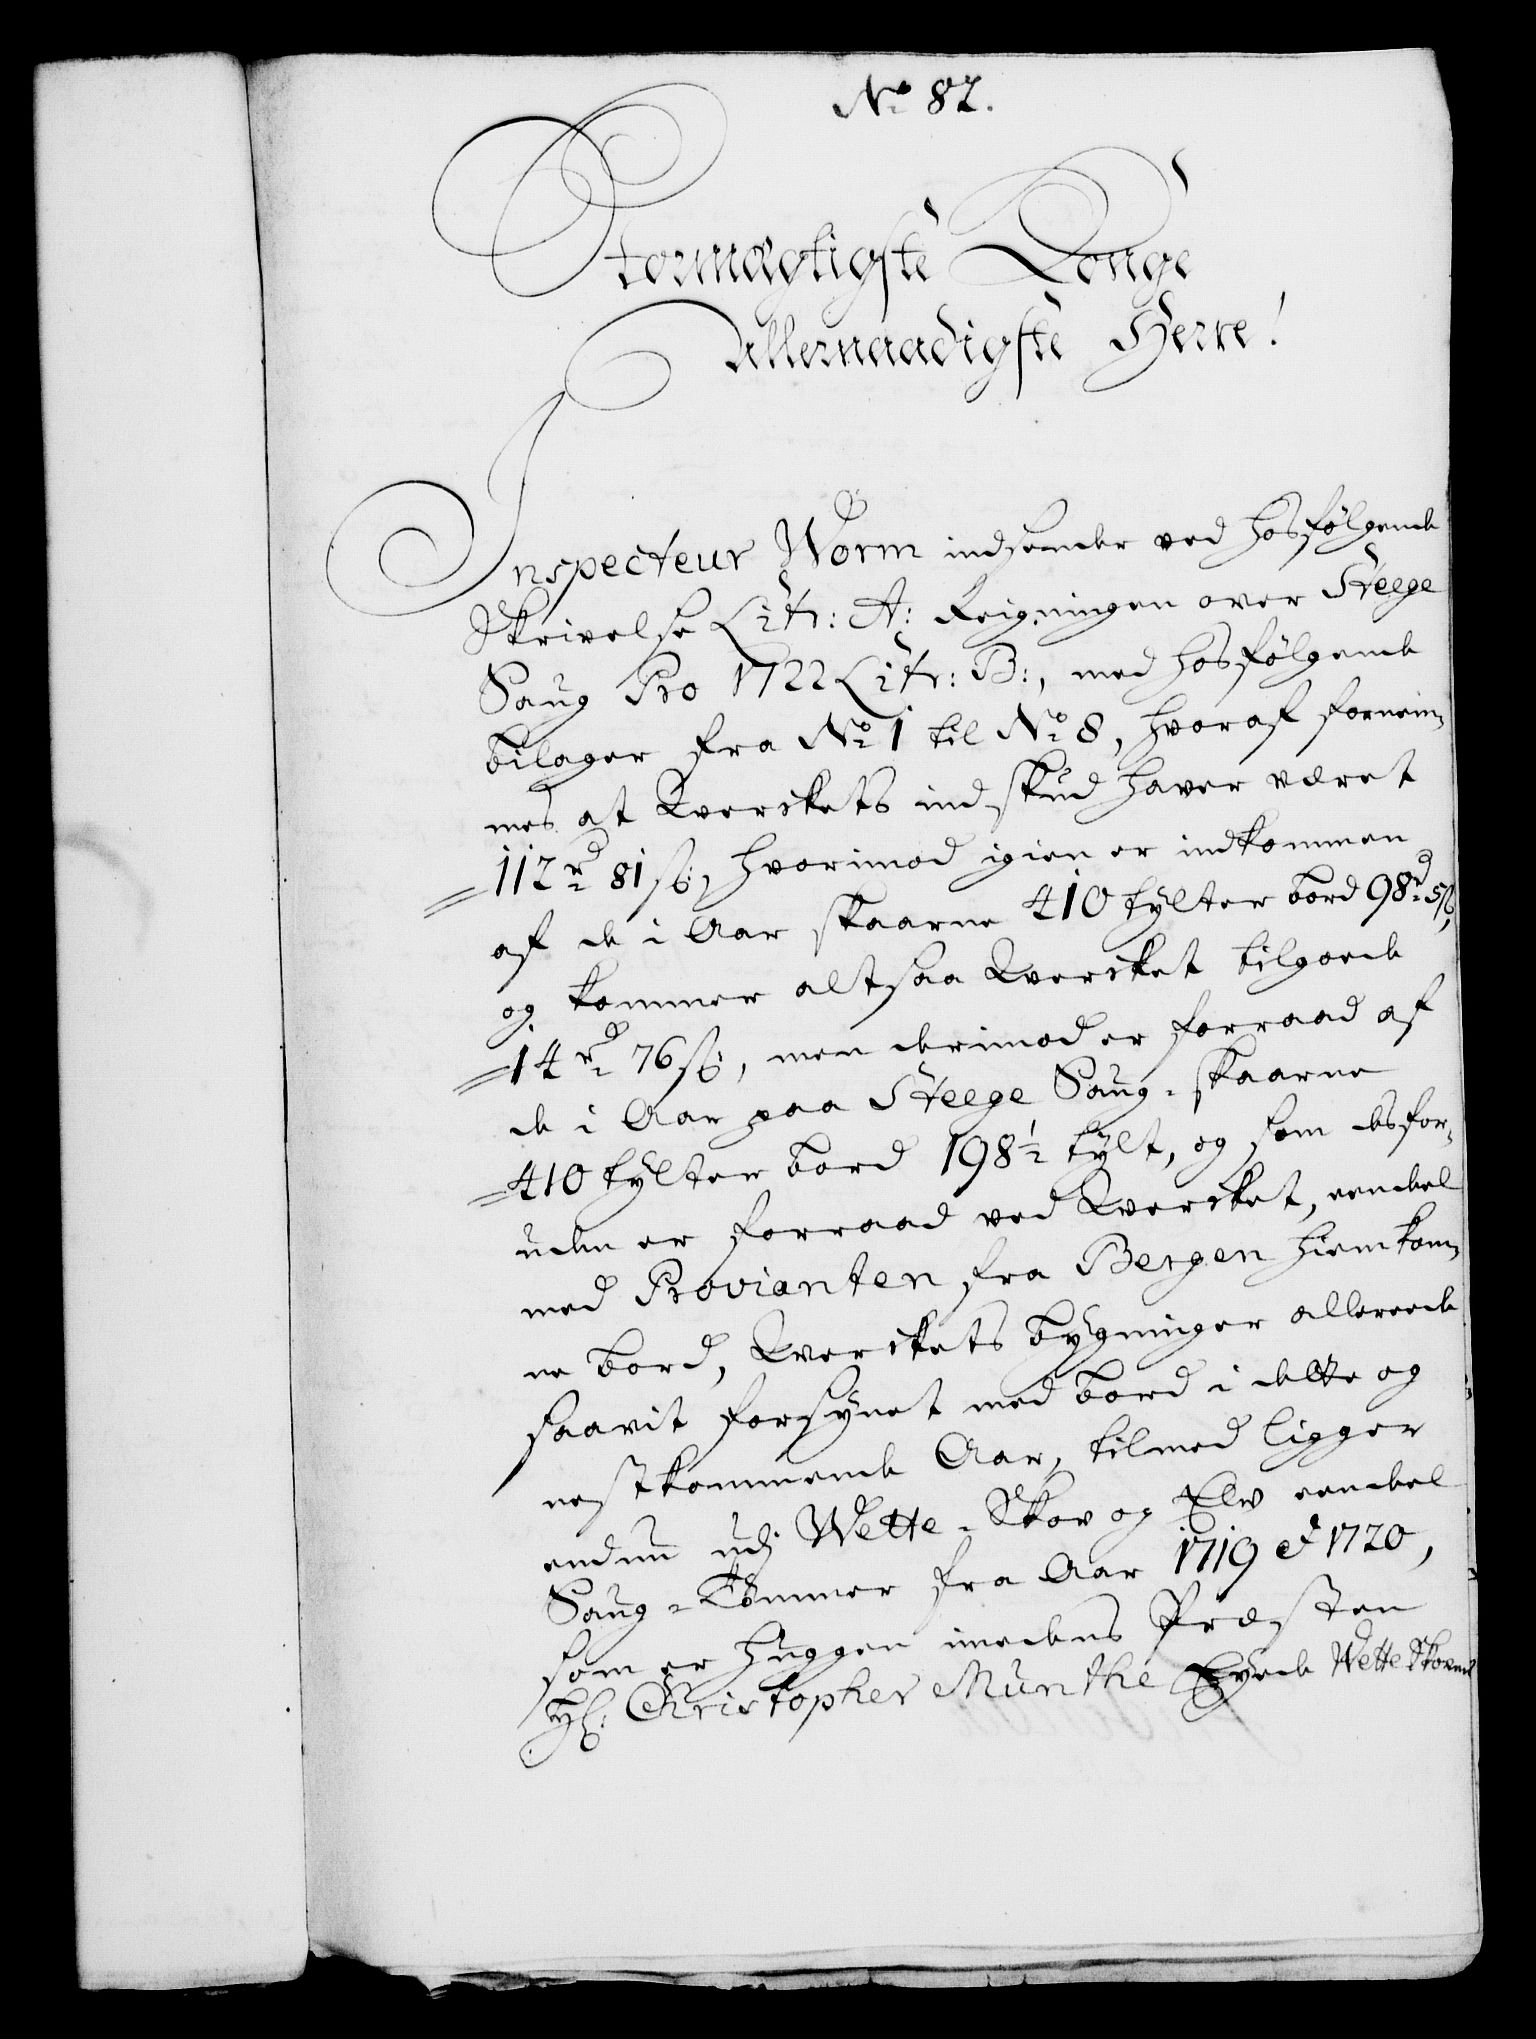 No 82.
Stormægtigste Konge
Allernaadigste Herre!
Inspecteur Worm indsender ved hosfølgende
Skrivelse Litr: A: Reigningen over Steege
Saug Pro 1722 Litr: B:, med hosfølgende
bilager fra No 1 til No 8, hvoraf fornem-
mes at Kverckets indskud haver været
112 rd 81 ß, hvorimod igien er indkommen
af de i Aar skaarne 410 tylter bord 98 rd 5 ß,
og kommer altsaa Kvercket tilgode
14 rd 76 ß, men derimod er forraad af
de i Aar paa Steege Saug-skaarne
410 tylter bord 198½ tylt, og som desfor-
uden er forraad ved Kvercket, eendeel
med Provianten fra Bergen hiemkom-
ne bord, Kverckets bygninger allereede
saavit forsynet med bord i dette og
nestkommende Aar, tilmed ligger
endnu udj Wette-Skov og Elv eendeel
Saug-Tømmer fra Aar 1719 & 1720,
som er huggen imedens Præsten
Hr: Christopher Munthe Eyede Wette Skoven